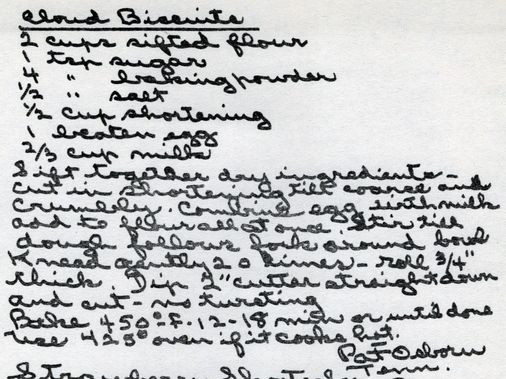 Cloud Biscuits
2 cups sifted flour
1 tsp sugar
4 " baking powder
1/2 " salt
1/2 cup shortening
1 beaten egg
2/3 cup milk
Sift together dry ingredients -
cut in shortening till coarse and
crumbly. Combine egg with milk
add to flour all at once. Stir till
dough follows fork around bowl
Knead gently 20 times - roll 3/4"
thick. Dip 2" cutter straight down
and cut - no twisting
Bake 450° F. 12-18 min or until done
use 425° oven if it cooks hot.
Pat Osborn
Tenn.